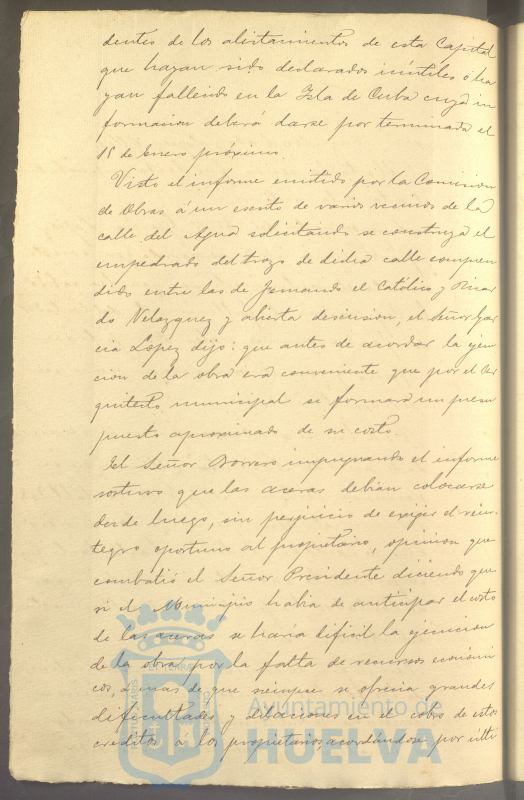 dentes de los alistamientos de esta Capital
que hayan sido declarados inútiles ó ha
yan fallecido en la Isla de Cuba cuya in
formacion deberá darse por terminada el
15 de Enero próximo.
Visto el informe emitido por la Comision
de Obras á un escrito de varios vecinos de la
calle del Agua solicitando se construya el
empedrado del trozo de dicha calle compren
dido entre las de Fernando el Católico y Ricar
do Velazquez y abierta discusion, el Señor Gar
cia Lopez dijo: que antes de acordar la ejecu
cion de la obra era conveniente que por el Ar
quitecto municipal se formara un presu
puesto aproximado de su costo.
El Señor Borrero impugnando el informe
sostuvo que las aceras debian colocarse
desde luego, sin perjuicio de exijir el rein
tegro oportuno al propietario, opinion que
combatió el Señor Presidente diciendo que
si el Municipio habia de anticipar el costo
de las aceras se haria dificil la ejecucion
de la obra por la falta de recursos económi
cos, á mas de que siempre se ofrecia grandes
dificultades y dilaciones en el cobro de estos
creditos á los propietarios, acordándose por ulti
Ayuntamiento de
HUELVA